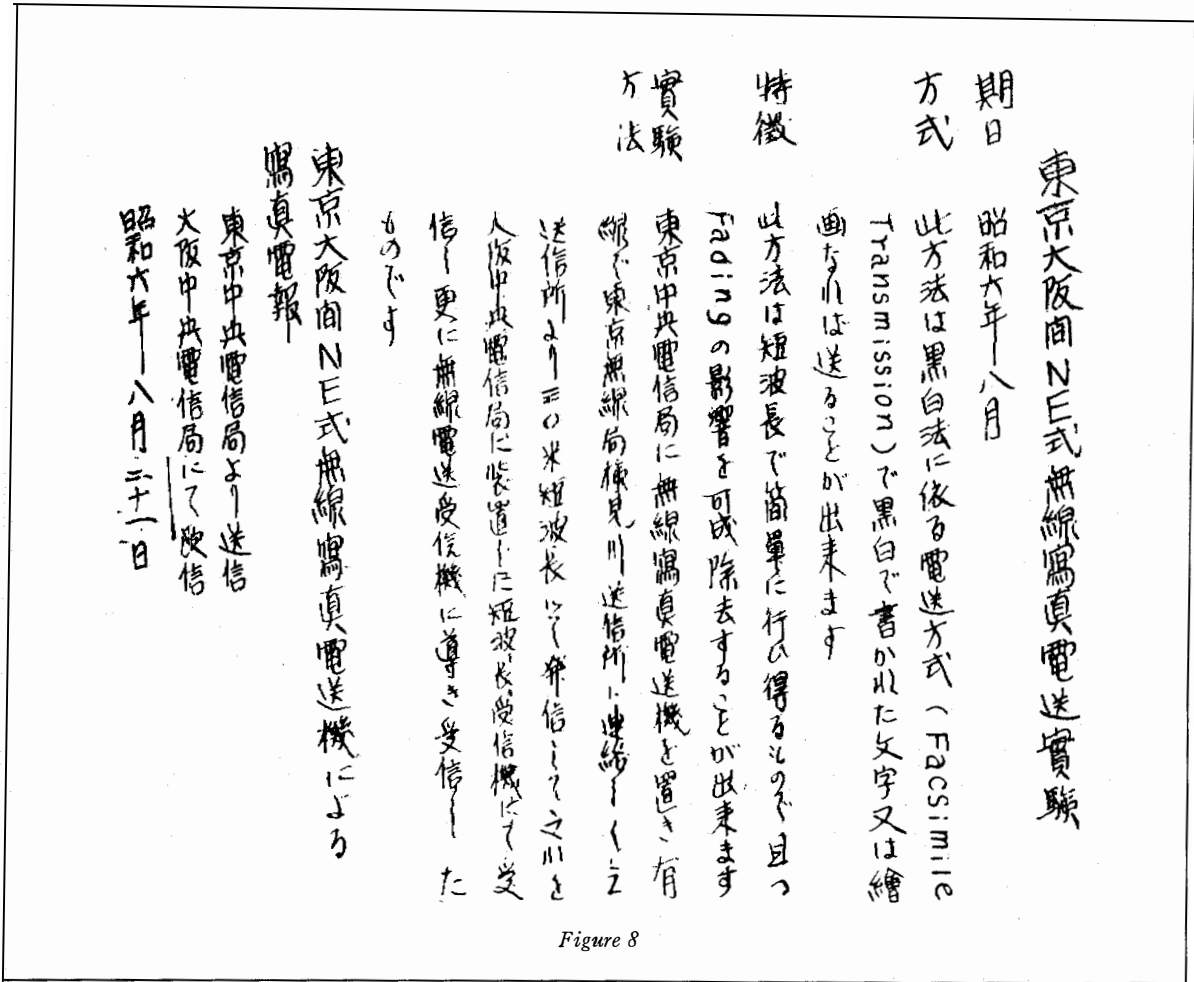 東京大阪間NE式無線寫真電送實驗
期日 昭和六年—八月
方式 此方法は黒白法に依る電送方式(Facsimile
Transmission)で黒白で書かれた文字又は繪
画なれば送ることが出来ます
特徴 此方法は短波長で簡單に行ひ得るもので且つ
Fadingの影響を可成除去することが出来ます
實驗方法 東京中央電信局に無線寫真電送機を置き有
線で東京無線局検見川送信所に連絡し之
送信所より三〇米短波長にて発信して之を
大阪中央電信局に装置した短波長受信機にて受
信し更に無線電送受信機に導き受信した
ものです
東京大阪間NE式無線寫真電送機による
寫真電報
東京中央電信局より送信
大阪中央電信局にて受信
昭和六年—八月二十一日
Figure 8